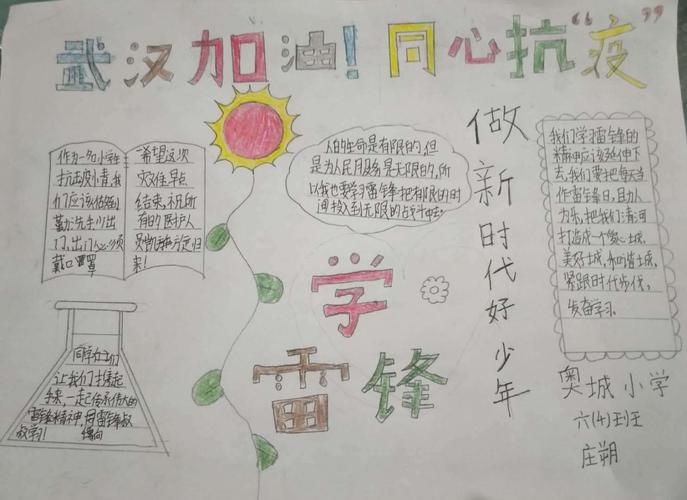 武汉加油!同心抗“疫”
作为一名小学生
抗击疫情,我
们应该做到
勤洗手少出
门,出门必须
戴口罩
希望这次
灾难早点
结束,永凡所
有的医护人
员
归
来!
人的生命是有限的,但
是为人民服务是无限的,所
以我也要学习雷锋把有限的时
间投入到无限的
做新时代好少年
我们学习雷锋的
精神应该延伸下
去,我们要把每天当
作雷锋日,助人
为乐,把我们
打造成一个爱心城,
美好城,和谐城,
紧跟时代步伐,
发奋学习。
学
雷锋
同学们
让我们
来,一起传承伟大的
雷锋精神,向雷锋叔
叔学习!
奥城小学
六(4)班
庄朔